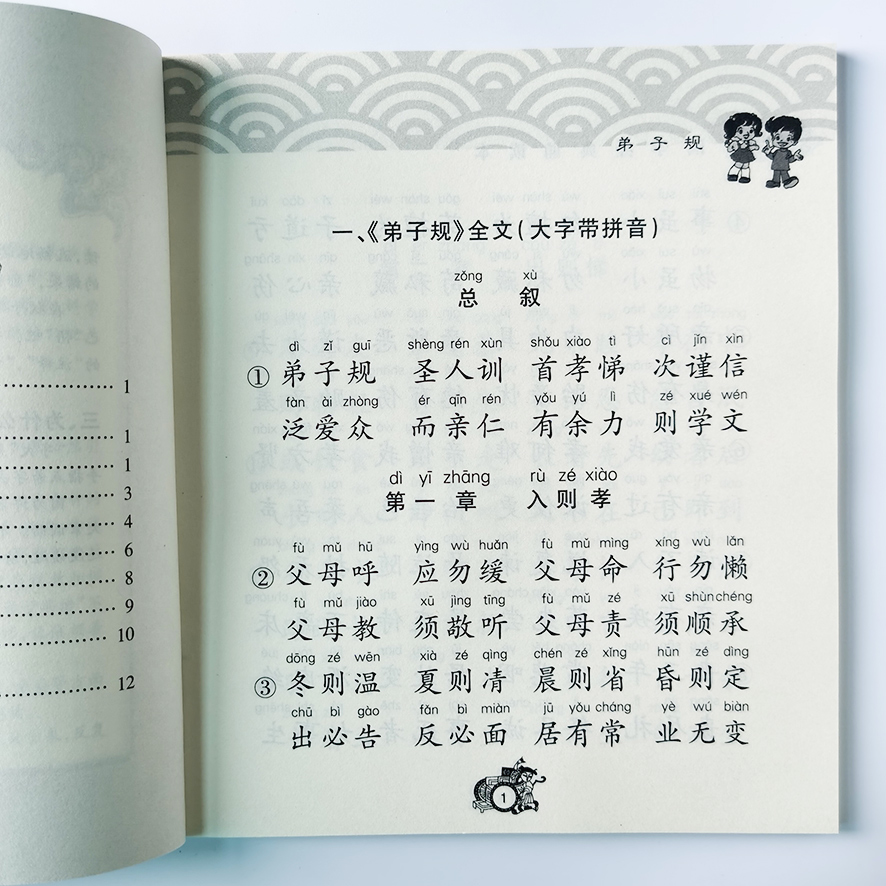 弟子规
一、《弟子规》全文(大字带拼音)
zǒng xù
总 叙
dì zǐ guī shèng rén xùn shǒu xiào tì cì jǐn xìn
① 弟子规 圣人训 首孝悌 次谨信
fàn ài zhòng ér qīn rén yǒu yú lì zé xué wén
泛爱众 而亲仁 有余力 则学文
dì yī zhāng rù zé xiào
第一章 入则孝
fù mǔ hū yìng wù huǎn fù mǔ mìng xíng wù lǎn
② 父母呼 应勿缓 父母命 行勿懒
fù mǔ jiào xū jìng tīng fù mǔ zé xū shùn chéng
父母教 须敬听 父母责 须顺承
dōng zé wēn xià zé qìng chén zé xǐng hūn zé dìng
③ 冬则温 夏则凊 晨则省 昏则定
chū bì gào fǎn bì miàn jū yǒu cháng yè wú biàn
出必告 反必面 居有常 业无变
1
1
1
1
3
4
6
8
9
10
12